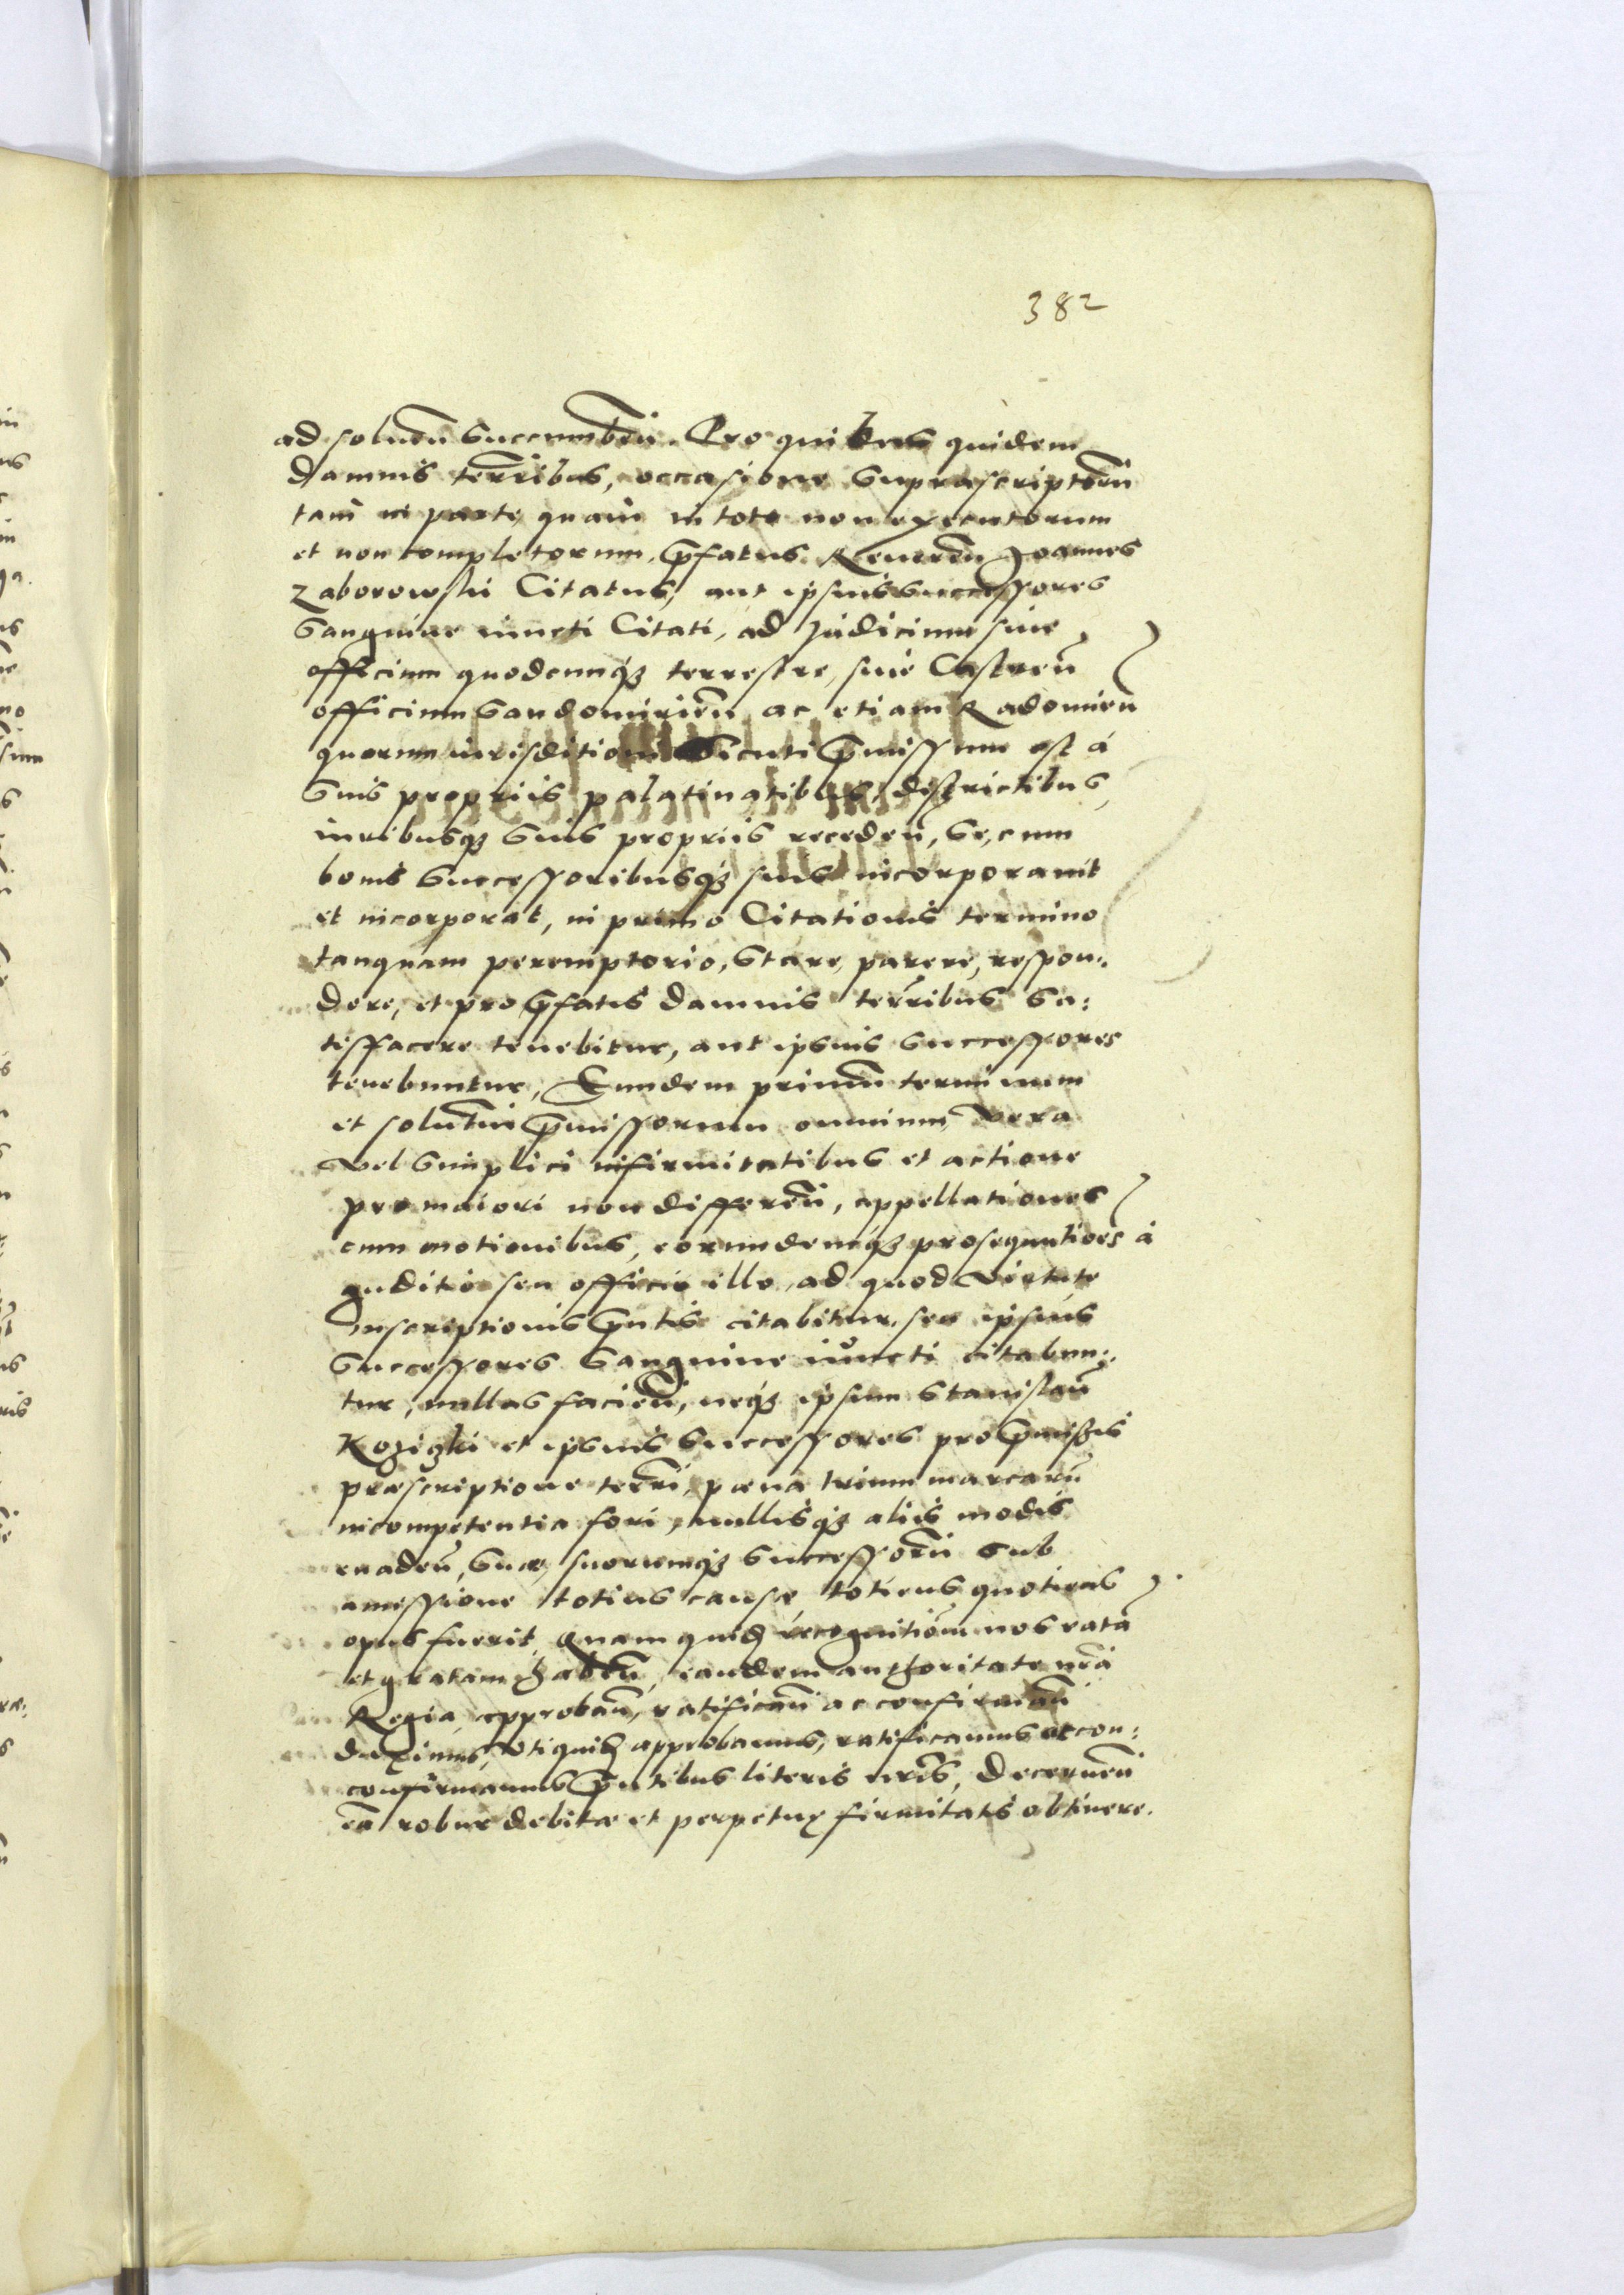 382
ad soluen̄ succumben̄. Pro quibus quidem
damnis terr̄ribus, occasione suprascriptorū
tam in parte quam in toto non executorum
et non completorum, p̄fatus Reueren̄ Joannes
Zaborowski Citatus, aut ipsius successores
sanguine iuncti Citati, ad Judicium siue
officium quodcumq₃ terrestre, siue Castren̄
officium Sandomirien̄ ac etiam Radomien̄
quorum iurisditioni sicuti p̄missum est á
suis propriis palatinatibus, districtibus,
iuribusq₃ suis propriis receden̄, se, cum
bonis successoribusq₃ suis incorporauit
et incorporat, in primo Citationis termino
tanquam peremptorio, stare, parere, respon:
dere, et pro p̄fatis damnis terr̄ribus sa:
tisfacere tenebitur, aut ipsius successores
tenebuntur, Eundem primum terminum
et solutīm p̄missorum omnium, vera
vel simplici infirmitatibus et actione
pro maiori non differen̄, appellationes
cum motionibus, eorundemq₃ prosequutiões á
Juditio seu officio illo, ad quod virtute
inscriptionis p̄ntis citabitur, seu ipsius
successores sanguine iuncti citabun:
tur, nullas facien̄, neq₃ ipsum Stanislaū
et ipsius successores pro p̄missis
præscriptione terrī, pœna trium marcarū
incompetentia fori, nullisq₃ aliis modis
euaden̄, suæ, suorumq₃ successorū sub
amissione totius causæ, toties quoties
opus fuerit, Quam quid̄ recognitiōem nos ratā
et gratam haben̄, eandem authoritate nr̄a
Regia, approban̄, ratifican̄ ac confirman̄
duximus, vti quid̄ approbamus, ratificamus et con:
confirmamus p̄ntibus literis nr̄is, Decernen̄
eā robur debitæ et perpetuę firmitatis obtinere.